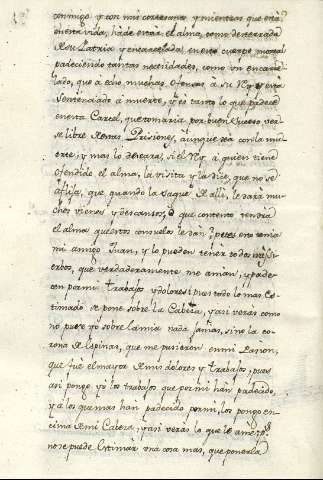 conmigo y con mi cortesana, y mientras que está
en esta vida, há de estár el alma, como desterrada
de su Latria y encarcelada en este cuerpo mortal
padeciendo tantas necesidades, como un encarce
lado, que a echo muchas ofensas á su Rey y está
sentenciado a muerte, y es tanto lo que padece
en esta Carcel, que tomaria por buen sucesso ver
se libre de estas Prisiones, aunque sea con la mu
erte, y mas lo deseara, si el Rey, á quien tiene
ofendido el alma, la visita y la dice, que no se
aflija, que quando la saque de alli, le dará mu
chos vienes y descansos, ò que contento tendrá
el alma que con consuelo le dan pues esto tenia
mi amigo Juan, y lo pueden tener todos mis Si
erbos, que verdaderamente me aman, y pade
cen por mi trabajos y dolores; pues todo lo mas Es
timado se pone sobre la Cabeza, y asi veras como
no puse yo sobre la mia nada jamas, sino la co
rona de Espinas, que me pusieron en mi Passion,
que fué el mayor de mis dolores y trabajos, pues
asi pongo yo los trabajos que por mi han padecido,
y á los que mas han padecido por mi, los pongo en
cima de mi Cabeza, y asi veras lo que le amé, pˢ
no se puede Estimar una cosa mas, que ponerla